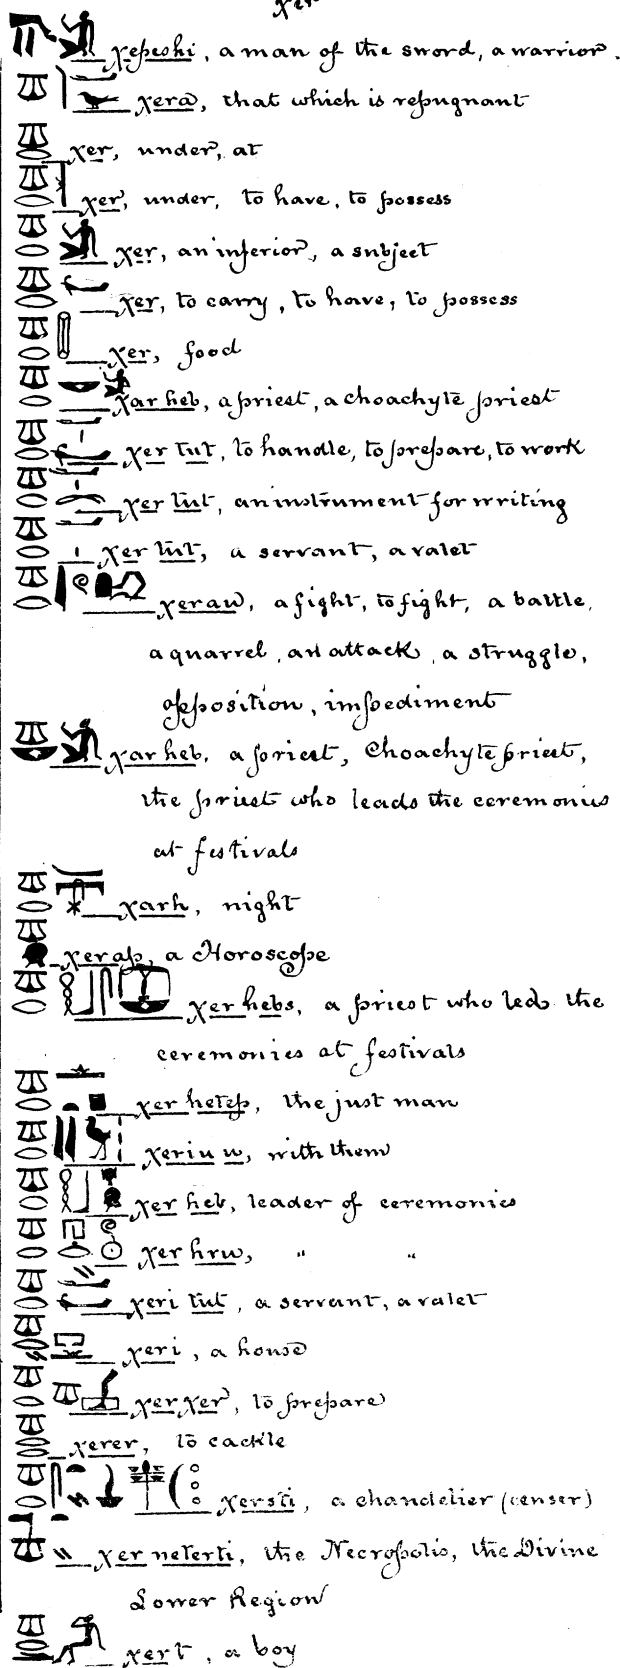 xer
xepeshi, a man of the sword, a warrior.
xera, that which is repugnant
xer, under, at
xer, under, to have, to possess
xer, an inferior, a subject
xer, to carry, to have, to possess
xer, food
xar heb, a priest, a choachyte priest
xer tut, to handle, to prepare, to work
xer tut, an instrument for writing
xer tut, a servant, a valet
xeraw, a fight, to fight, a battle,
a quarrel, an attack, a struggle,
opposition, impediment
xar heb, a priest, Choachyte priest,
the priest who leads the ceremonies
at festivals
xarh, night
xerap, a Horoscope
xer hebs, a priest who led the
ceremonies at festivals
xer hetep, the just man
xeriu u, with them
xer heb, leader of ceremonies
xer hru, " "
xeri tut, a servant, a valet
xeri, a house
xer xer, to prepare
xerer, to cackle
xersti, a chandelier (censer)
xer neterti, the Necropolis, the Divine
Lower Region
xert, a boy